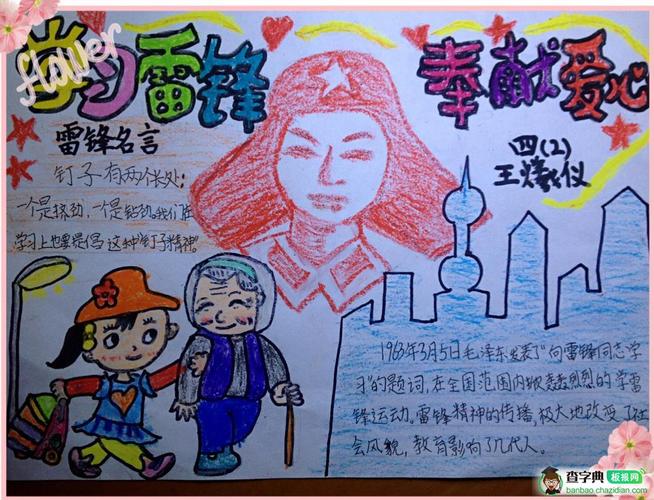 flower
学习雷锋
奉献爱心
雷锋名言
钉子有两个长处:
一个是挤劲,一个是钻劲。我们在
学习上也要提倡这种"钉子精神"。
四(2)
1963年3月5日毛泽东发表了"向雷锋同志学
习"的题词,在全国范围内掀轰轰烈烈的学雷
锋运动。雷锋精神的传播,极大地改变了社
会风貌,教育影响了几代人。
查字典 板报网
banbao.chazidian.com